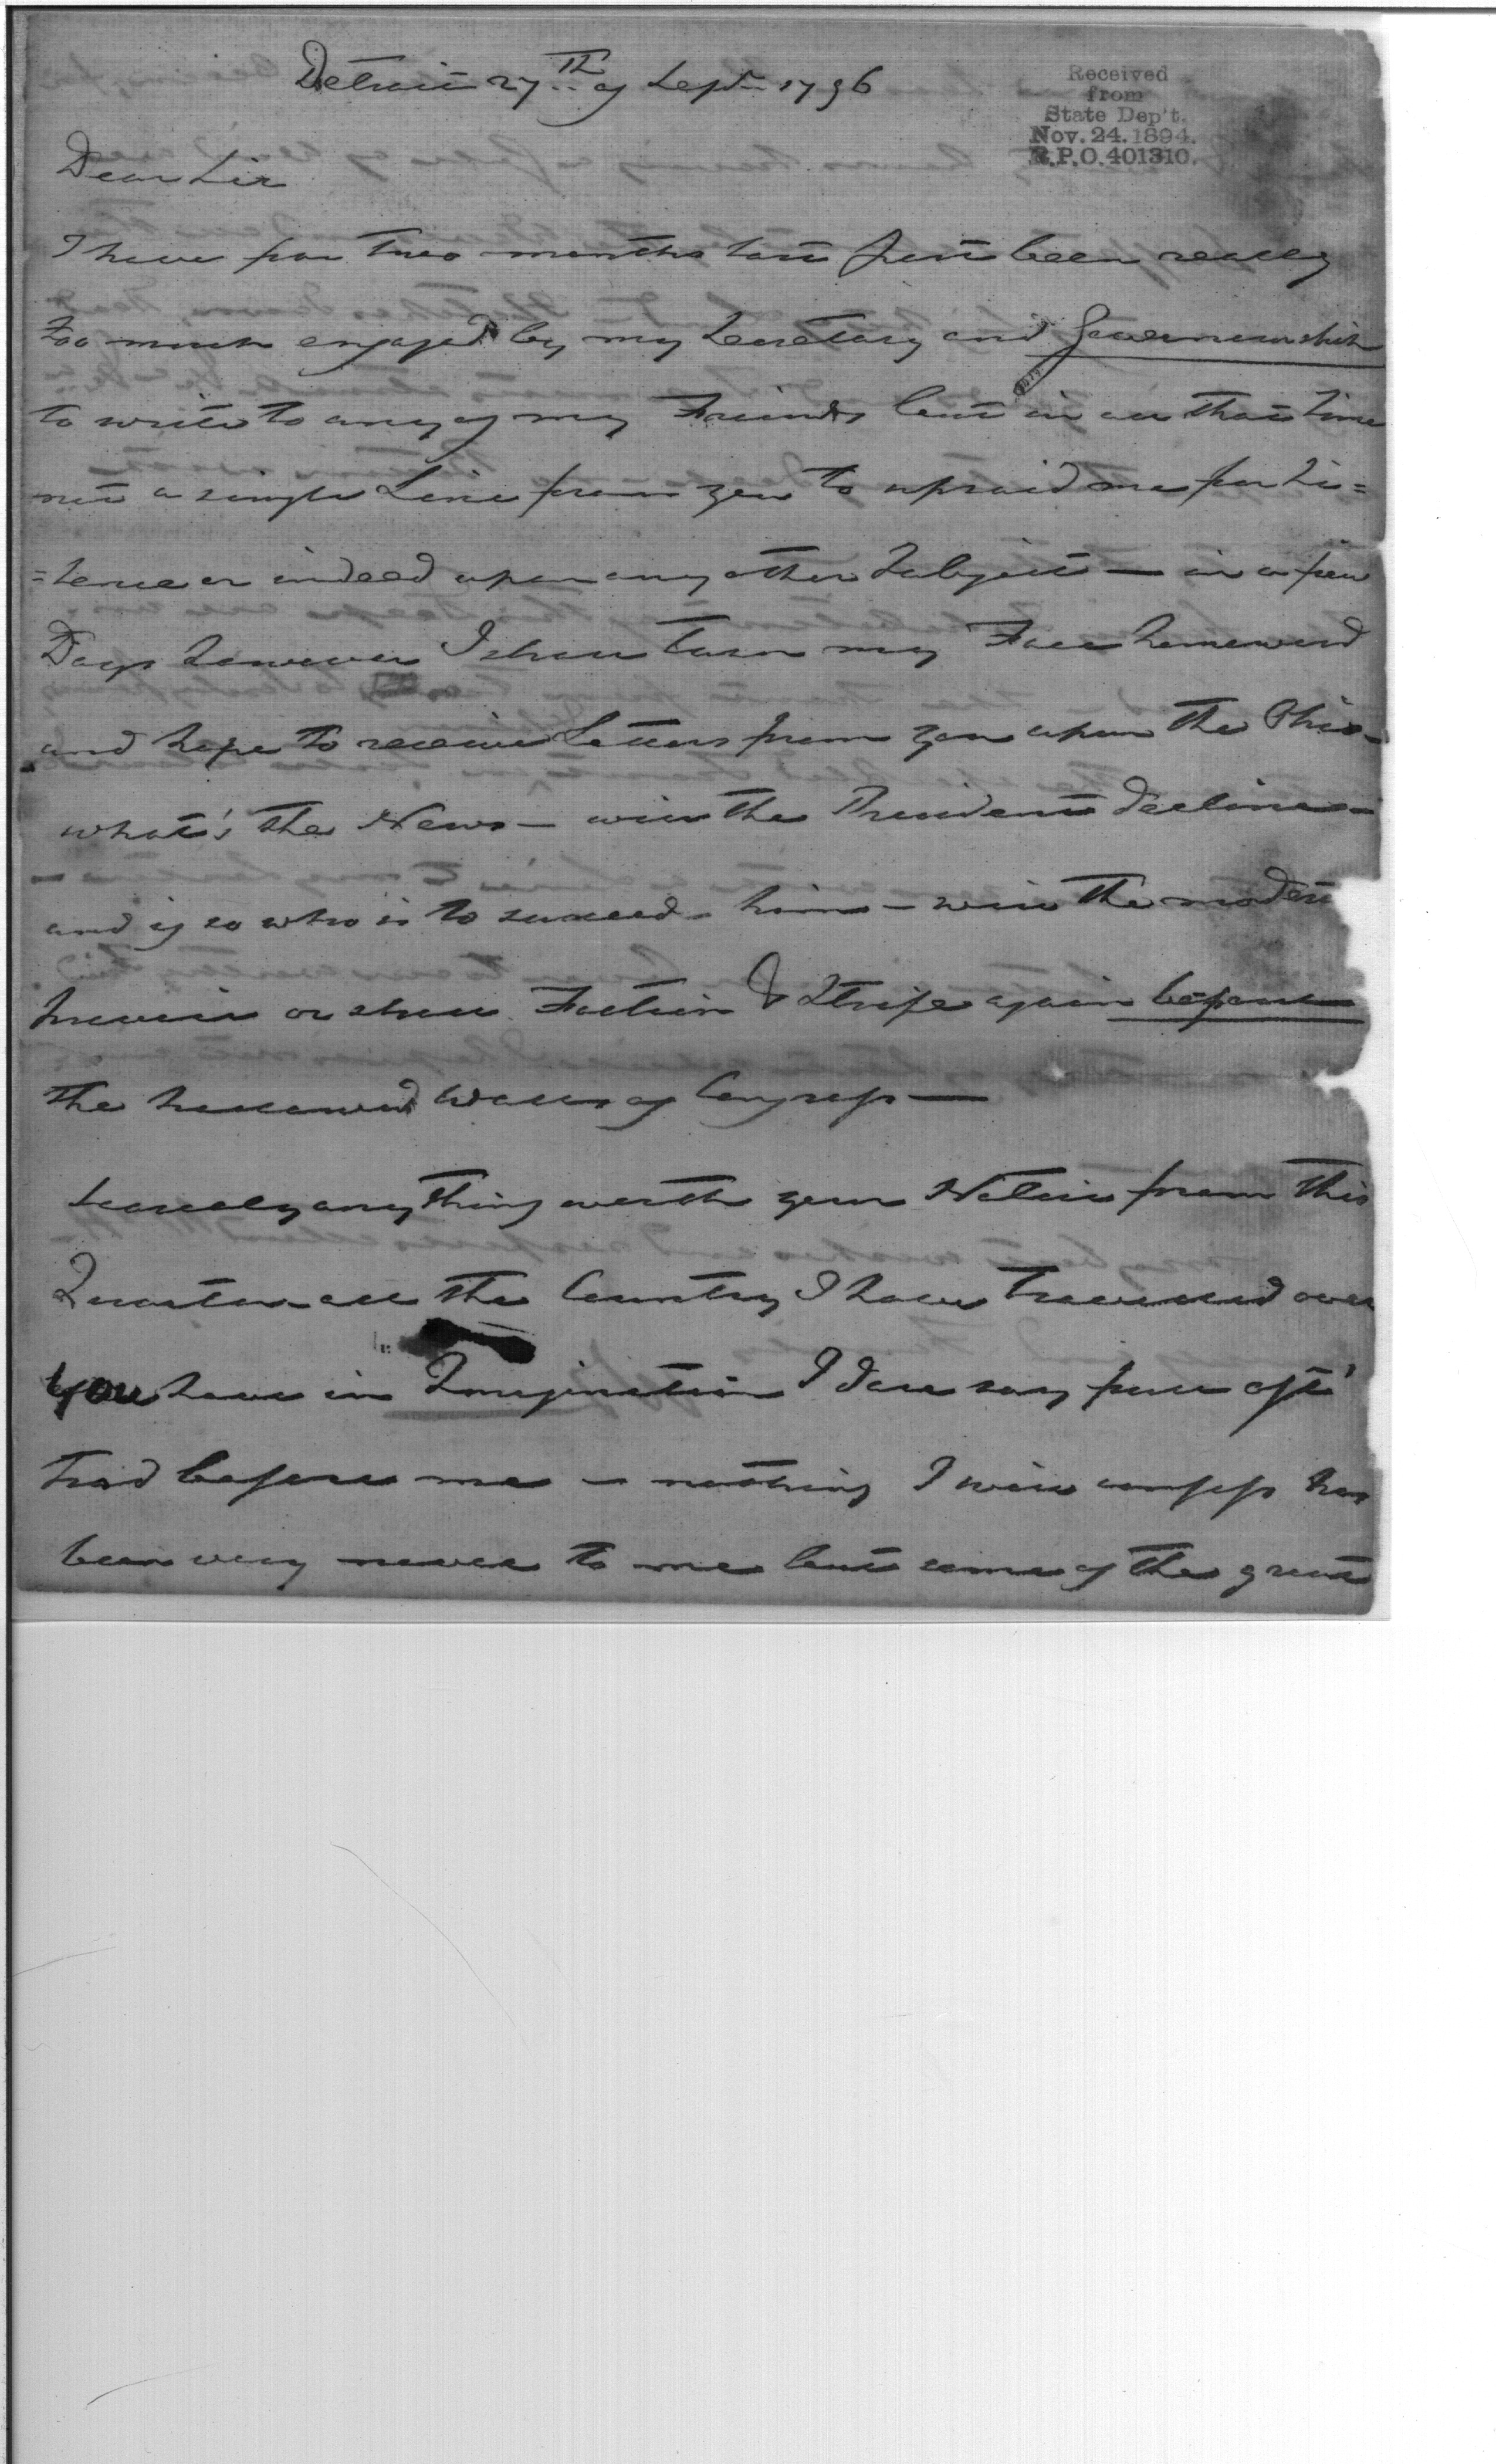 Detroit 27th of Sepr 1796
Received
from
State Dep't.
Nov. 24. 1894.
R.P.O. 401310.
Dear Sir
I have for two months last past been really
Too much engaged by my Secretary and Governourship
to write to any of my Friends but in all that time
not a single Line from you to upraid me for Si=
=lence or indeed upon any other Subject — in a few
Days however I shall turn my Face homeward
and hope to receive Letters from you upon the Ohio—
what's the News — will the President decline —
and if so who is to succeed him — will the modest
or shall Faction & Strife again
the hallowed Walls of Congress —
scarcely anything worth your Notice from this
Quarter — all the Country I have traversed over
you have in Imagination I dare say full oft'
trod before me — nothing I will confess has
been very novel to me but some of the great